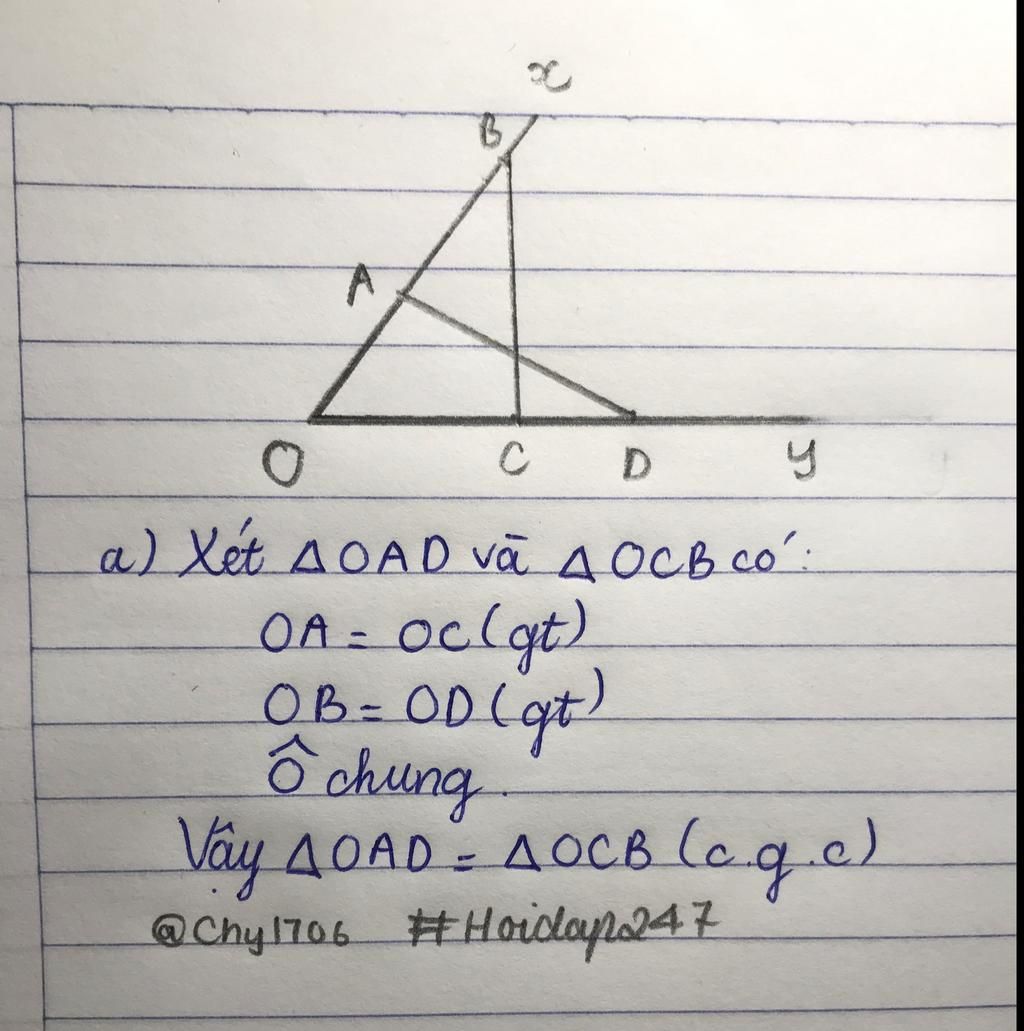 x
B
A
O C D y
a) Xét ΔOAD và ΔOCB có:
OA = OC (gt)
OB = OD (gt)
Ô chung.
Vậy ΔOAD = ΔOCB (c.g.c)
@Chy1706 #Hoidap247